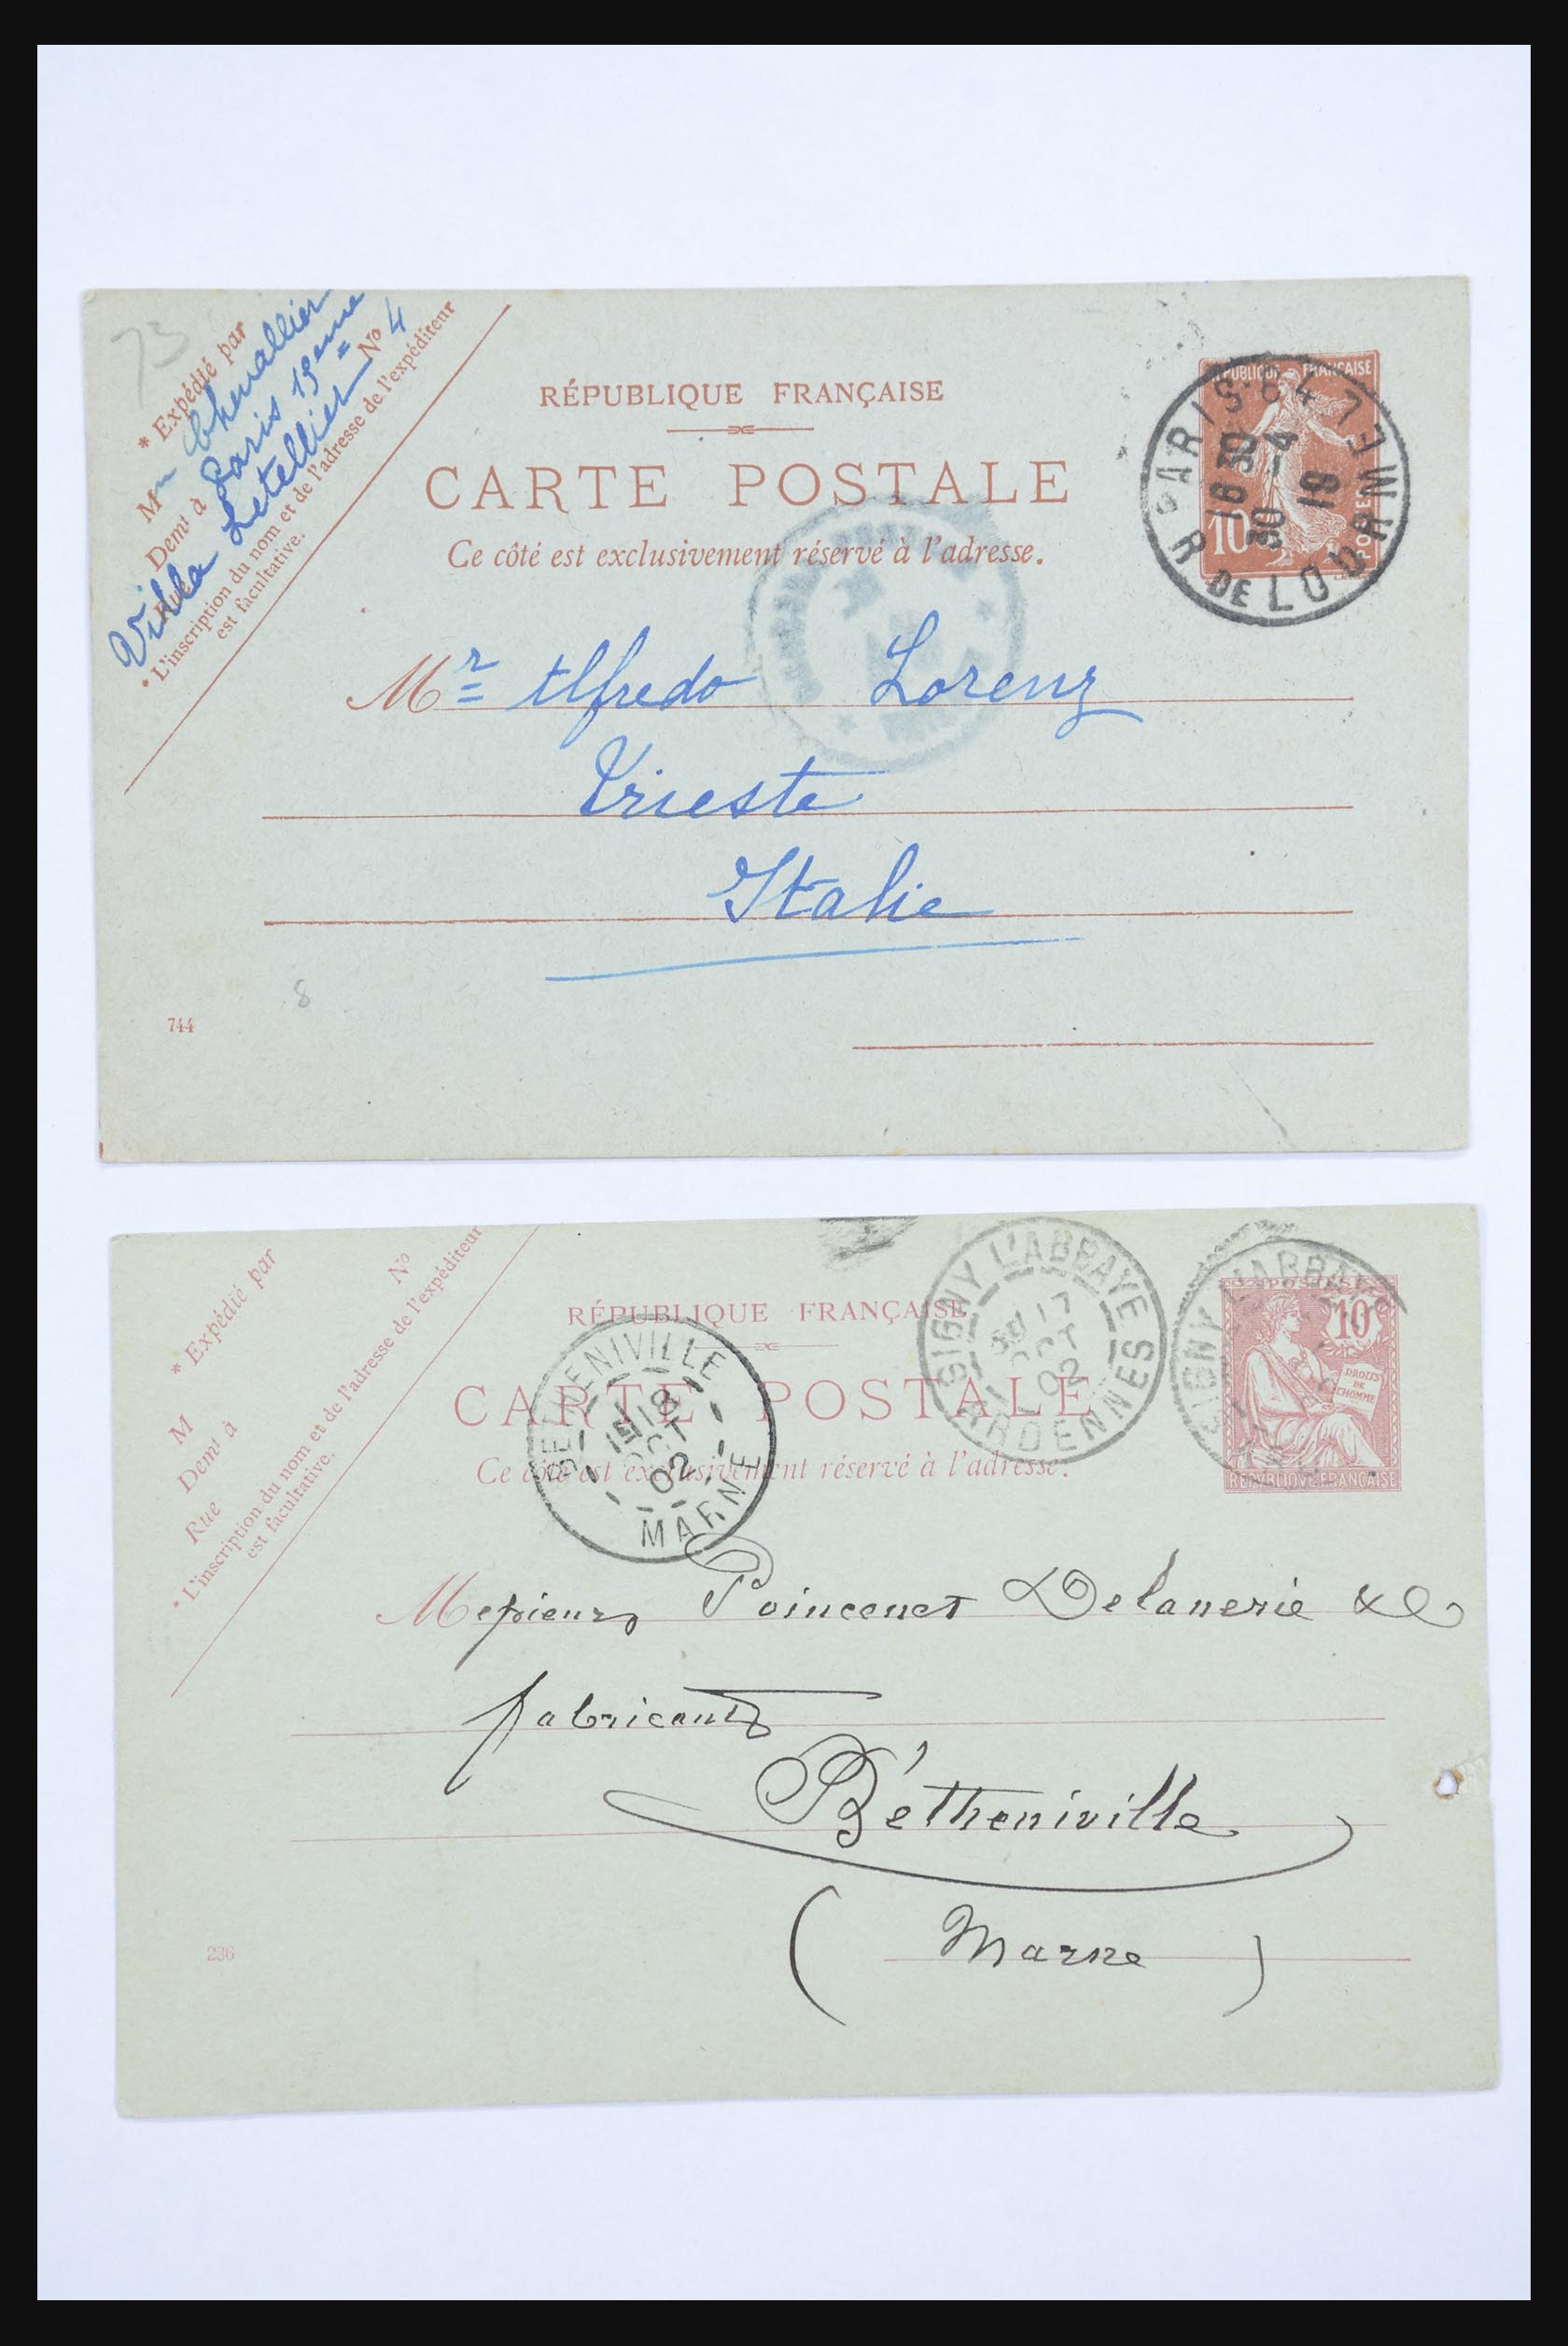 73
* Expédié par
Mr Chevallier
Demt à Paris 19eme
Rue Villa Letellier No 4
* L'inscription du nom et de l'adresse de l'expéditeur
est facultative.
RÉPUBLIQUE FRANÇAISE
CARTE POSTALE
Ce côté est exclusivement réservé à l'adresse.
RÉPUBLIQUE FRANÇAISE
10
POSTES
PARIS-64
16 30
30 -4
19
Mr Alfredo Lorenz
Trieste
Italie
8
744
* Expédié par
M
Demt à
Rue No
* L'inscription du nom et de l'adresse de l'expéditeur
est facultative.
RÉPUBLIQUE FRANÇAISE
CARTE POSTALE
Ce côté est exclusivement réservé à l'adresse.
BETHENIVILLE
18
OCT
02
MARNE
SIGNY L'ABBAYE
17
OCT
02
ARDENNES
SIGNY L'ABBAYE
POSTES
10
DROITS
DE
L'HOMME
REPVBLIQVE FRANÇAISE
Messieurs Poincenet Delanerie & C
fabricants
Bétheniville
(Marne)
236